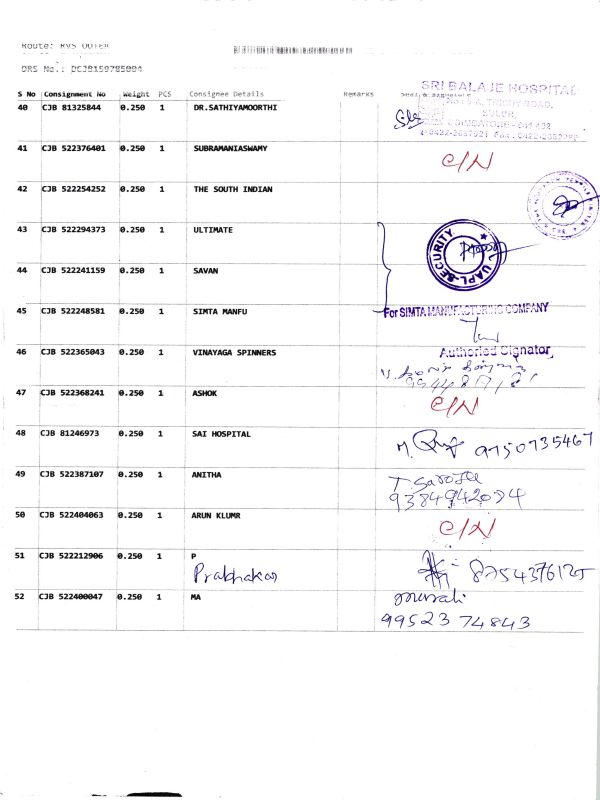 Route: RVS OUTER
DRS No.: DCJB159785004
S No Consignment No Weight PCS Consignee Details Remarks
SRI BALAJE HOSPITAL
40 CJB 81325844 0.250 1 DR.SATHIYAMOORTHI
SULUR,
41 CJB 522376401 0.250 1 SUBRAMANIASWAMY C/N
42 CJB 522254252 0.250 1 THE SOUTH INDIAN
43 CJB 522294373 0.250 1 ULTIMATE
UAPL-SECURITY
44 CJB 522241159 0.250 1 SAVAN
45 CJB 522248581 0.250 1 SIMTA MANFU
For SIMTA MANUFACTURING COMPANY
46 CJB 522365043 0.250 1 VINAYAGA SPINNERS
Authoried Signator
47 CJB 522368241 0.250 1 ASHOK C/N
48 CJB 81246973 0.250 1 SAI HOSPITAL M. 9750735467
49 CJB 522387107 0.250 1 ANITHA T. Saroja
9384942094
50 CJB 522404063 0.250 1 ARUN KLUMR C/N
51 CJB 522212906 0.250 1 P
Prabhakar 8754376125
52 CJB 522400047 0.250 1 MA murali
99523 74843